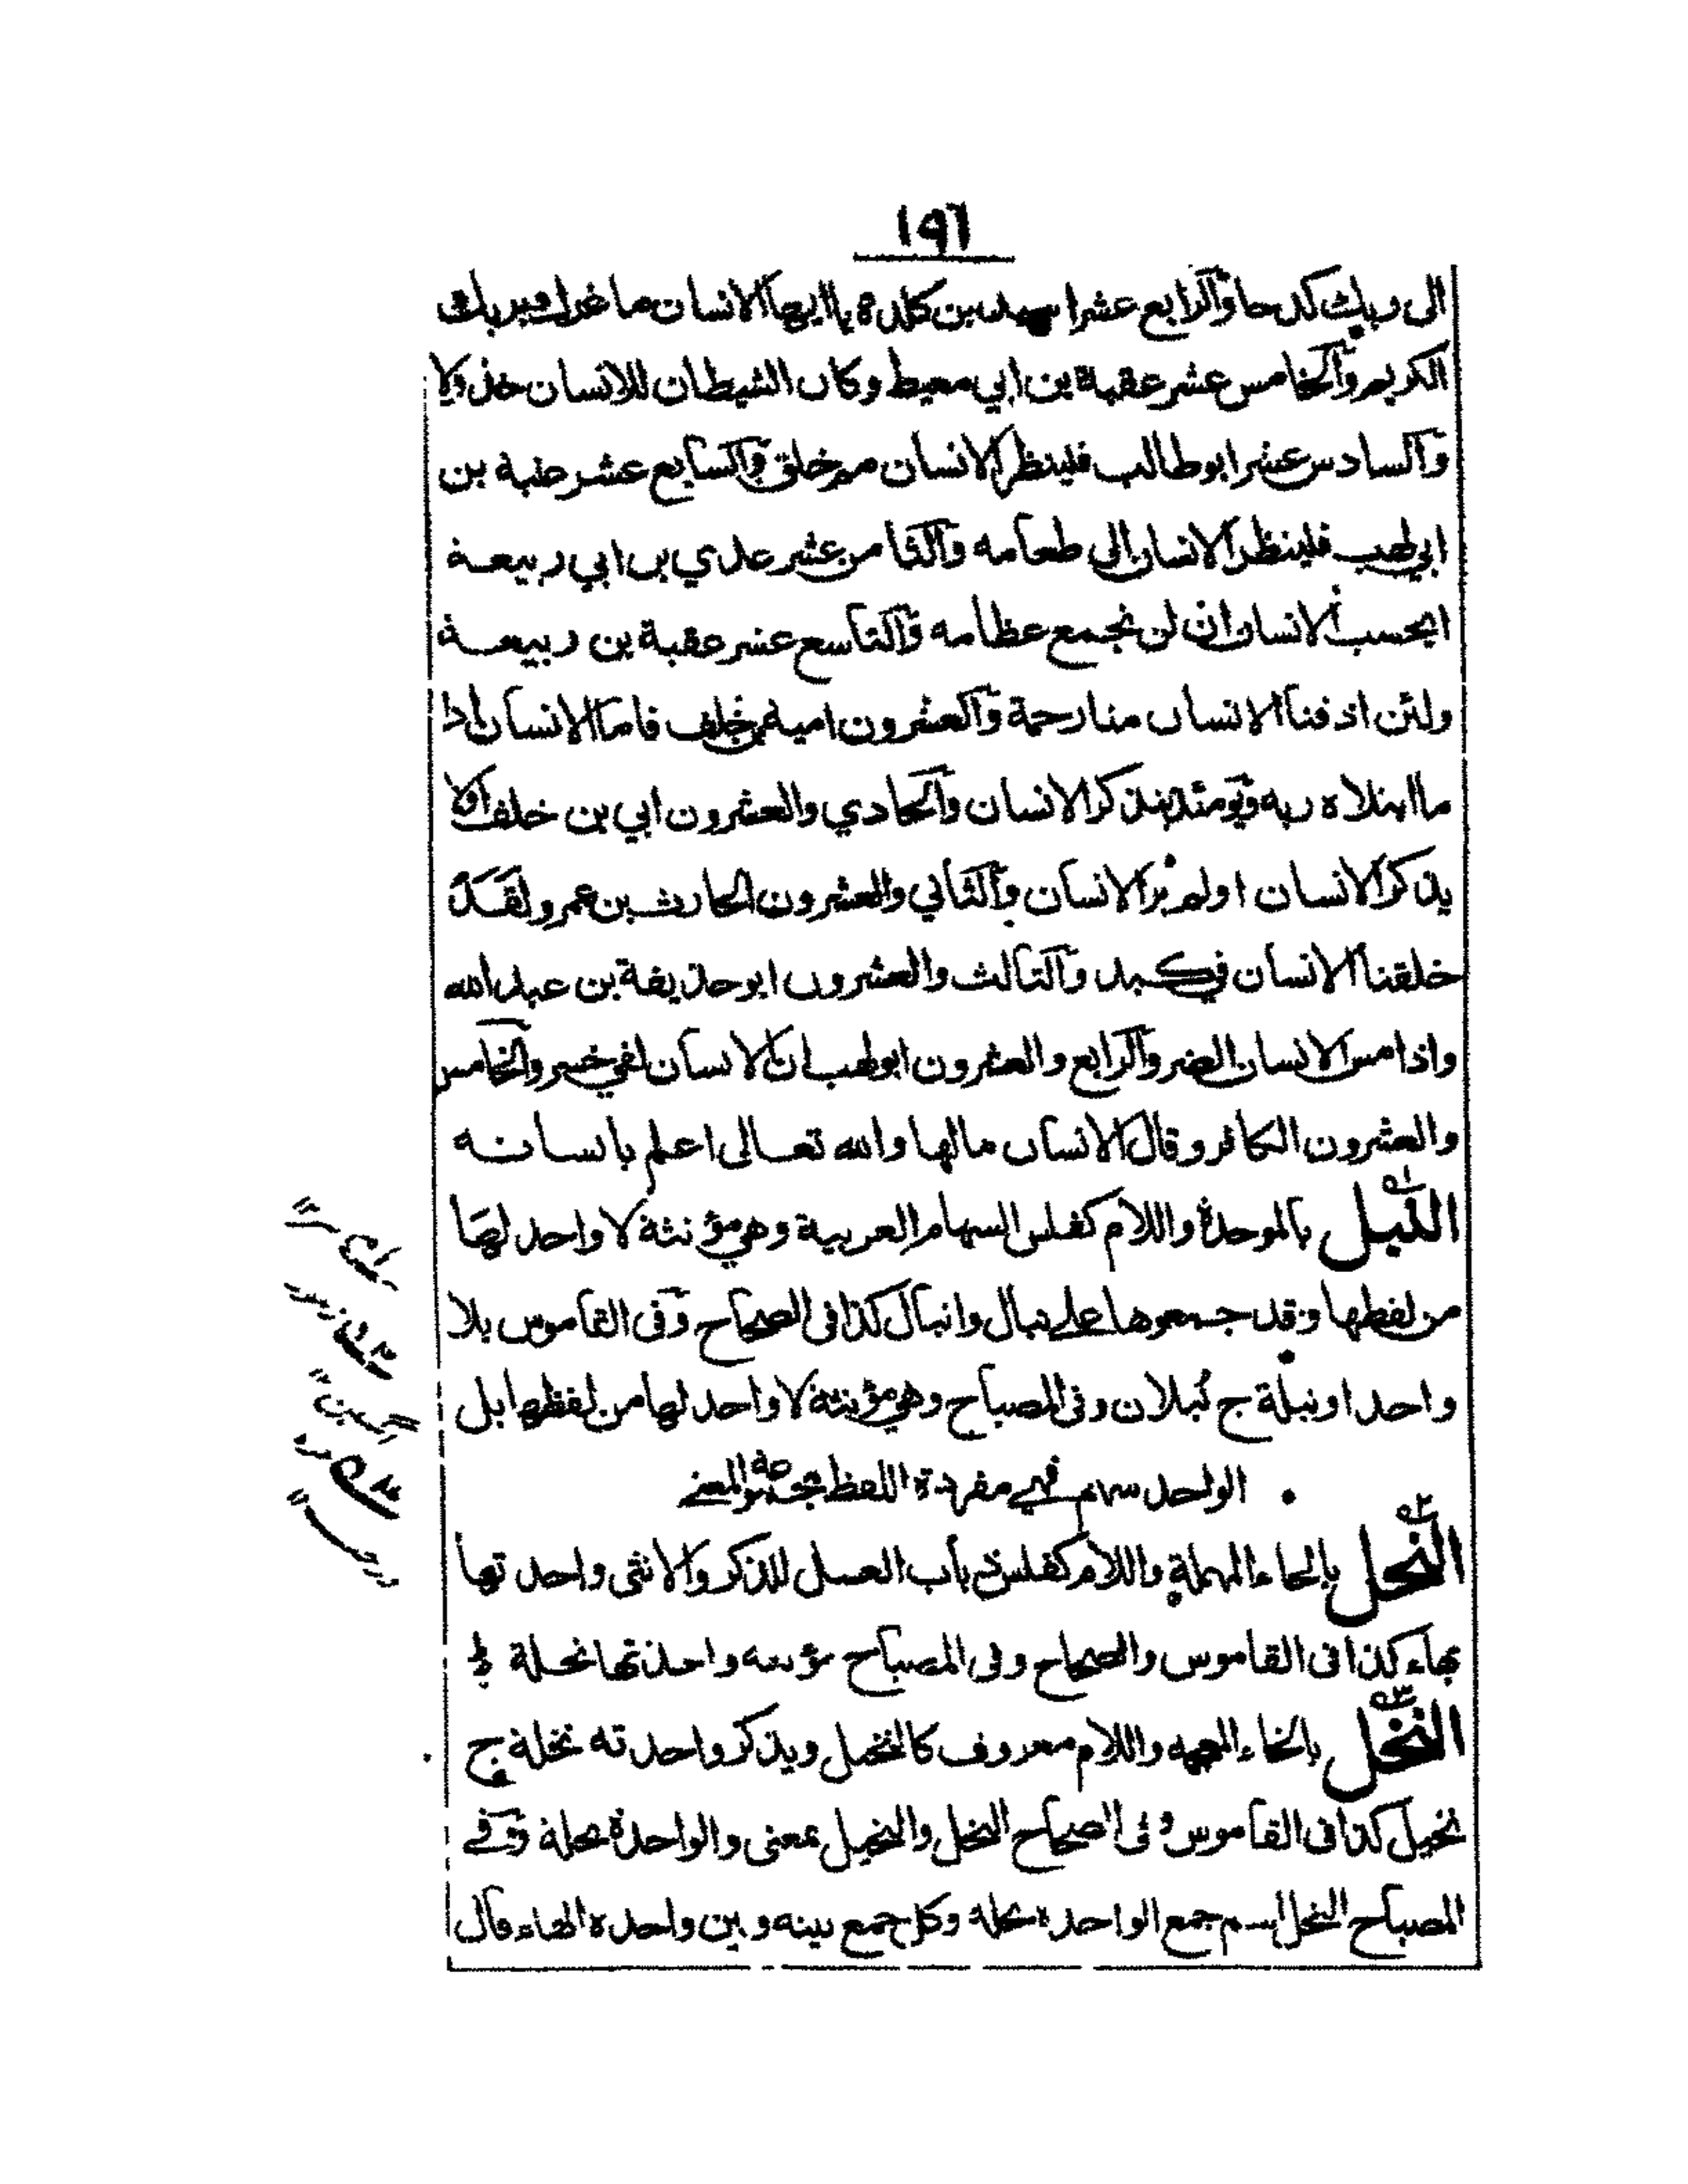 ١٩٦
الى ربك كدحا والرابع عشر اسيد بن كلدة يا ايها الانسان ما غرك بربك
الكريم والخامس عشر عقبة بن ابي معيط وكان الشيطان للانسان خذولا
والسادس عشر ابوطالب فلينظر الانسان مم خلق والسابع عشر عتبة بن
ابي لهب فلينظر الانسان الى طعامه والثامن عشر عدي بن ابي ربيعة
ايحسب الانسان ان لن نجمع عظامه والتاسع عشر عقبة بن ربيعة
ولئن اذقنا الانسان منا رحمة والعشرون امية بن خلف فاما الانسان اذا
ما ابتلاه ربه ويومئذ يتذكر الانسان والحادي والعشرون ابي بن خلف اولا
يذكر الانسان اولم ير الانسان والثاني والعشرون الحارث بن عمرو لَقَدْ
خلقنا الانسان في كبد والثالث والعشرون ابو حذيفة بن عبد الله
واذا مس الانسان الضر والرابع والعشرون ابولهب ان الانسان لفي خسر والخامس
والعشرون الكافر وقال الانسان مالها والله تعالى اعلم بانسانه
النبل بالموحدة واللام كفلس السهام العربية وهي مؤنثة لا واحد لها
من لفظها وقد جمعوها على نبال وانبال كذا في الصحاح وفى القاموس بلا
واحد او نبلة ج نُبلان وفى المصباح وهي مؤنثة لا واحد لها من لفظها بل
الواحد سهم فهي مفردة اللفظ مجموعة المعنى
النحل بالحاء المهملة واللام كفلس ذباب العسل للذكر والانثى واحدتها
بهاء كذا فى القاموس والصحاح وفى المصباح مؤنثه واحدتها نحلة
النخل بالخاء المعجمه واللام معروف كالنخيل ويذكر واحدته نخلة ج
نخيل كذا فى القاموس وفى الصحاح النخل والنخيل بمعنى والواحدة نخلة وفي
المصباح النخل اسم جمع الواحدة نخلة وكل جمع بينه وبين واحده الهاء قال